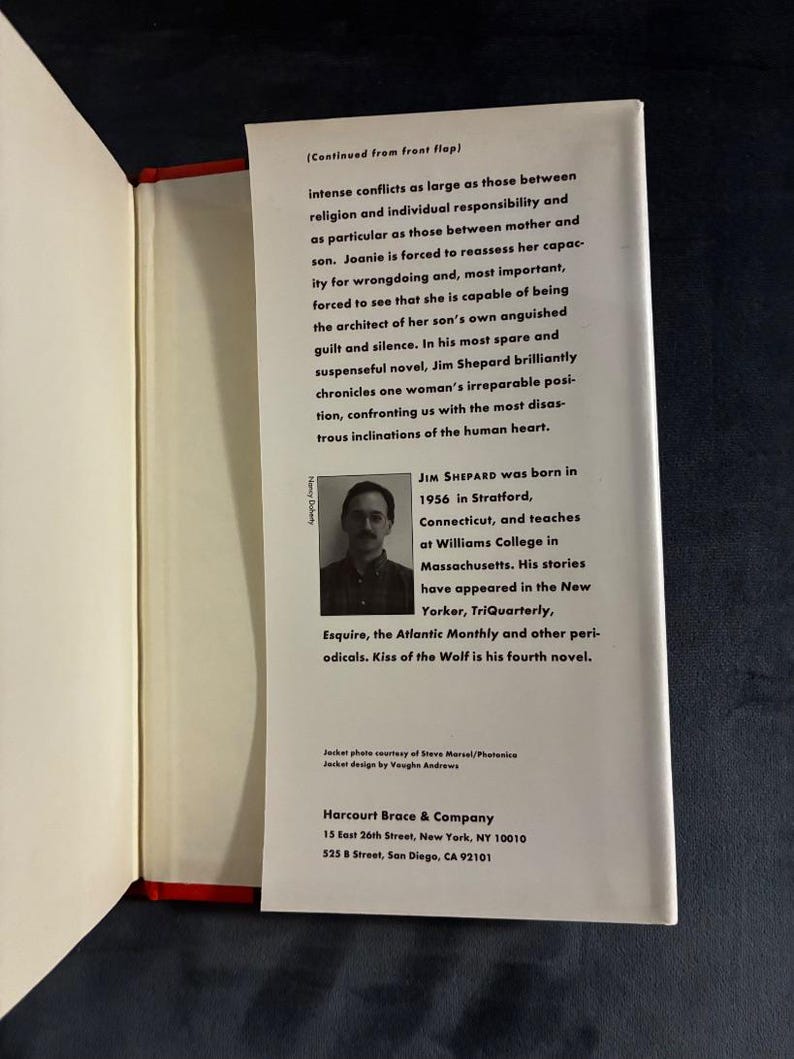 (Continued from front flap)
intense conflicts as large as those between
religion and individual responsibility and
as particular as those between mother and
son. Joanie is forced to reassess her capac-
ity for wrongdoing and, most important,
forced to see that she is capable of being
the architect of her son's own anguished
guilt and silence. In his most spare and
suspenseful novel, Jim Shepard brilliantly
chronicles one woman's irreparable posi-
tion, confronting us with the most disas-
trous inclinations of the human heart.
Nancy Doherty
JIM SHEPARD was born in
1956 in Stratford,
Connecticut, and teaches
at Williams College in
Massachusetts. His stories
have appeared in the New
Yorker, TriQuarterly,
Esquire, the Atlantic Monthly and other peri-
odicals. Kiss of the Wolf is his fourth novel.
Jacket photo courtesy of Steve Marsel/Photonica
Jacket design by Vaughn Andrews
Harcourt Brace & Company
15 East 26th Street, New York, NY 10010
525 B Street, San Diego, CA 92101